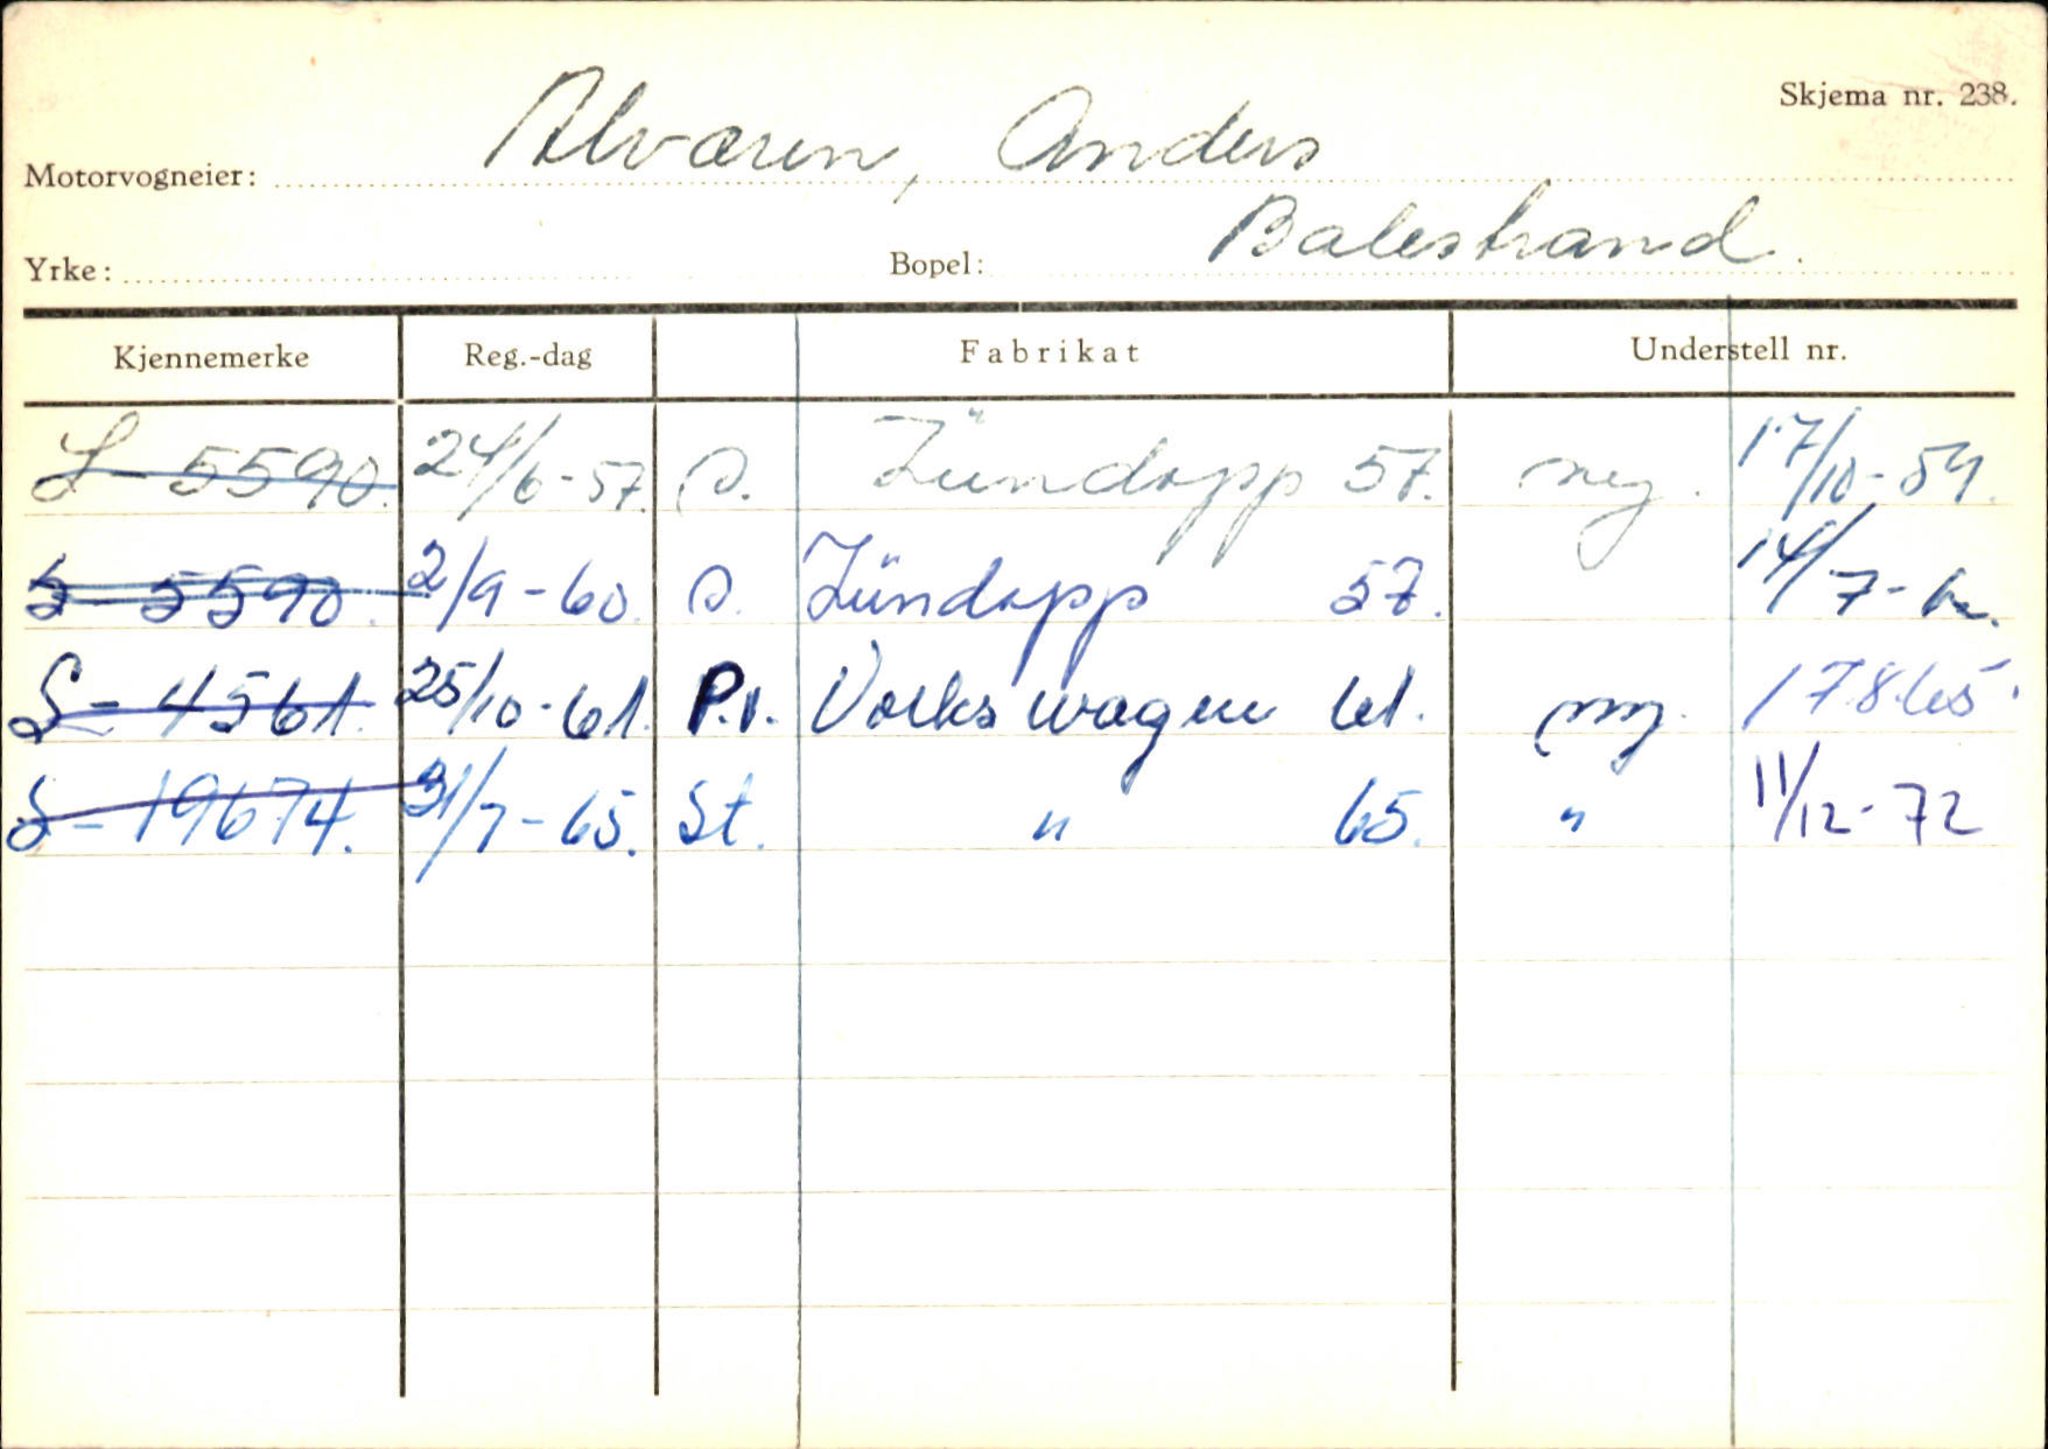 Skjema nr. 238.
Motorvogneier: Alværen, Anders
Yrke: Bopel: Balestrand.
Kjennemerke Reg.-dag Fabrikat Understell nr.
S-5590. 24/6-57. Zündapp 57. 17/10-59.
S-5590. 2/9-60. Zündapp 57. 14/7-
S-4561. 25/10-61. P.v. Volkswagen 61. ny. 17865.
S-19674. 31/7-65. St. " 65. " 11/12-72